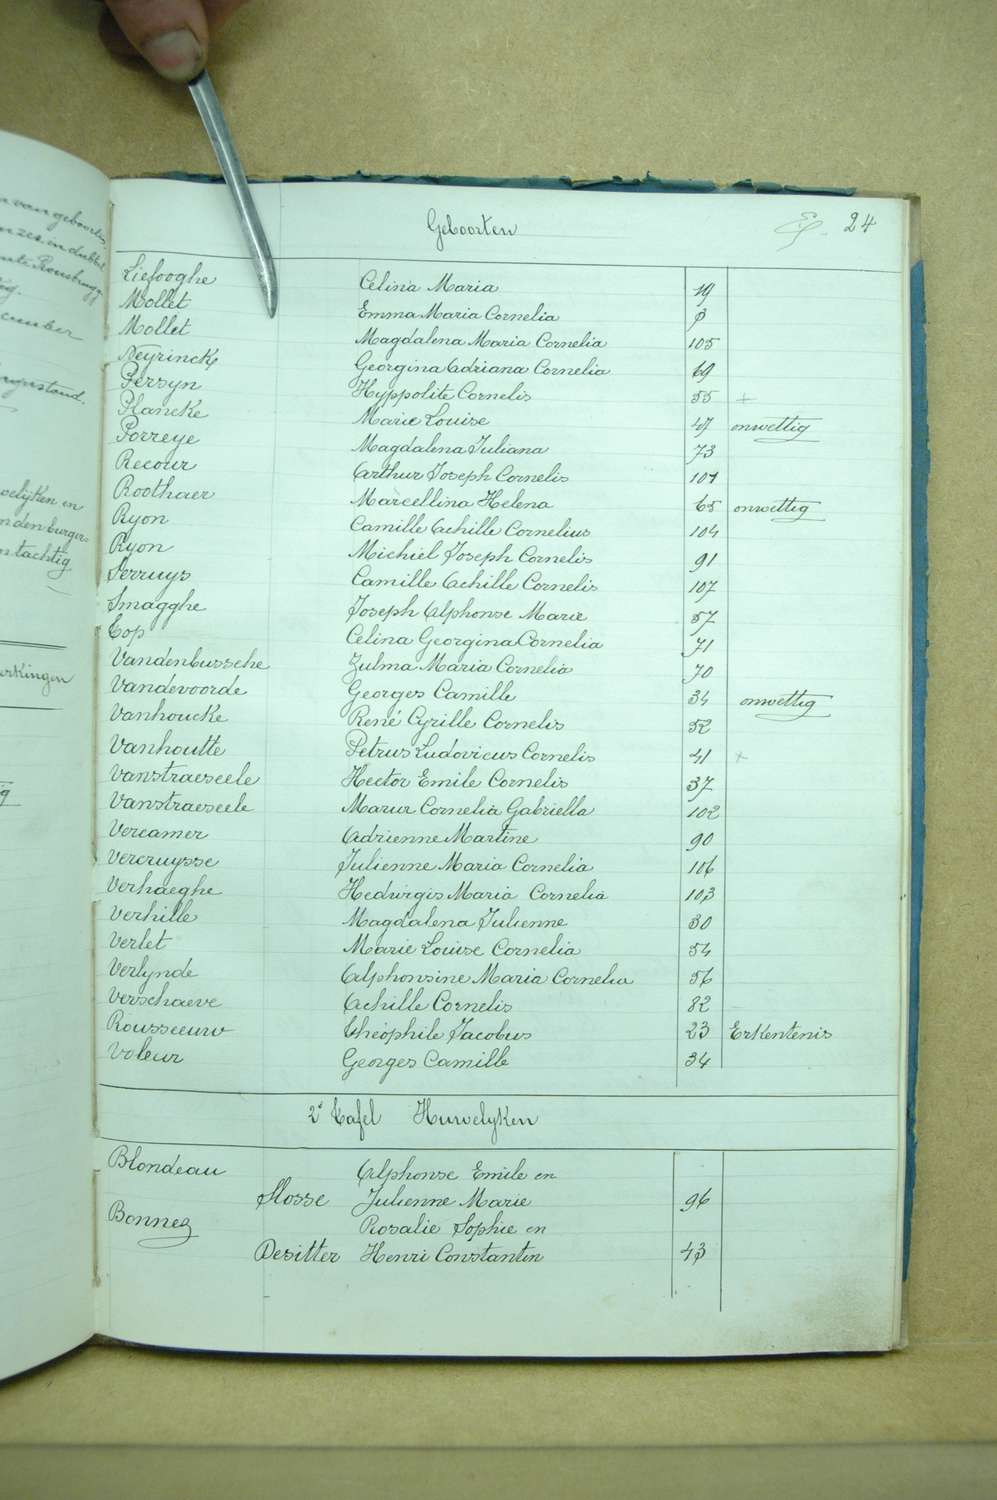 n van geboorten,
onzes, in dubbel
ente Rousbrugge
cember
oelijken en
n den burger-
n tachtig
erkingen
Geboorten 24
Liefooghe Celina Maria 19
Mollet Emma Maria Cornelia
Mollet Magdalena Maria Cornelia 105
Neyrinck Georgina Adriana Cornelia 69
Persyn Hyppolite Cornelis 55 +
Plancke Marie Louise 47 onwettig
Porreye Magdalena Juliana 73
Recour Arthur Joseph Cornelis 101
Roothaer Marcellina Helena 65 onwettig
Ryon Camille Achille Cornelius 104
Ryon Michiel Joseph Cornelis 91
Serruys Camille Achille Cornelis 107
Smagghe Joseph Alphonse Marie 57
Top Celina Georgina Cornelia 71
Vandenbussche Zulma Maria Cornelia 70
Vandevoorde Georges Camille 34 onwettig
Vanhoucke René Cyrille Cornelis 52
Vanhoutte Petrus Ludovicus Cornelis 41 +
Vanstraeseele Hector Emile Cornelis 37
Vanstraeseele Cornelia Gabriella 102
Vercamer Adrienne Martine 90
Vercruysse Julienne Maria Cornelia 106
Verhaeghe Hedwigis Maria Cornelia 103
Verhille Magdalena Julienne 30
Verlet Marie Louise Cornelia 54
Verlynde Alphonsine Maria Cornelia 56
Verschaeve Achille Cornelis 82
Rousseeuw Théophile Jacobus 23 Erkentenis
Voleur Georges Camille 34
2e Tafel Huwelyken
Blondeau Alphonse Emile en
Slosse Julienne Marie 96
Bonnez Rosalie Sophie en
Desitter Henri Constantin 43